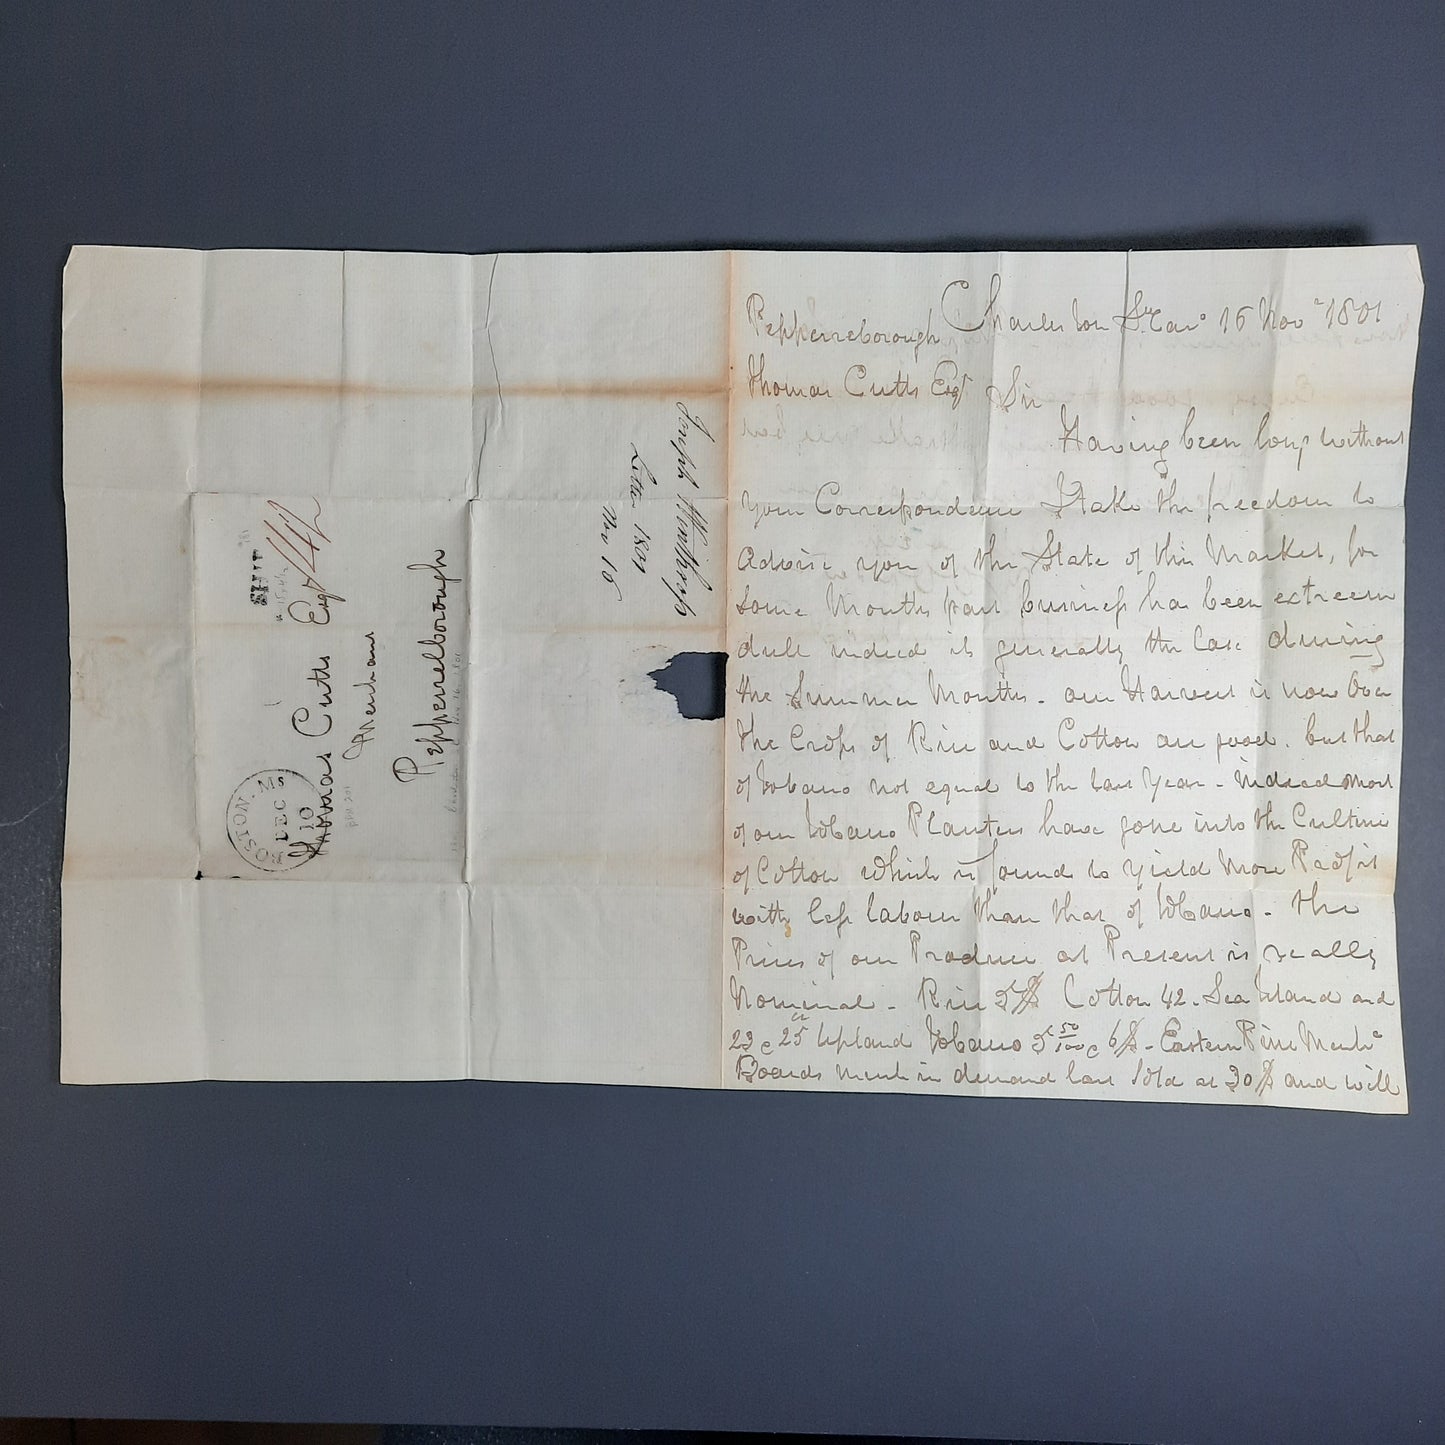 Charleston So Caro 16 Novr 1801
Pepperreborough
Thomas Cutts Esqr Sir
Having been long without
your Correspondence I take the freedom to
advise you of the State of this Market, for
some Months past business has been extreem
dull indeed it is generally the Case during
the Summer Months - our Harvest is now Over
the Crops of Rice and Cotton are good. but that
of Tobacco not equal to the last Year - indeed Most
of our Tobacco Planters have gone into the Culture
of Cotton which is found to yield More Profit
with less labour than that of Tobacco - the
Prices of our Produce at Present is really
Nominal - Rice 3$ Cotton 42. Sea Island and
23 @ 25 Upland Tobacco 3 50/100 @ 6$ - Eastern Pine Merche
Boards much in demand last Sold at 30$ and will
Joseph Winthrop
Letter 1801
Nov 16
SHIP
14½
BOSTON. MS
DEC
10
Thomas Cutts Esqr
Merchant
Pepperrelborough